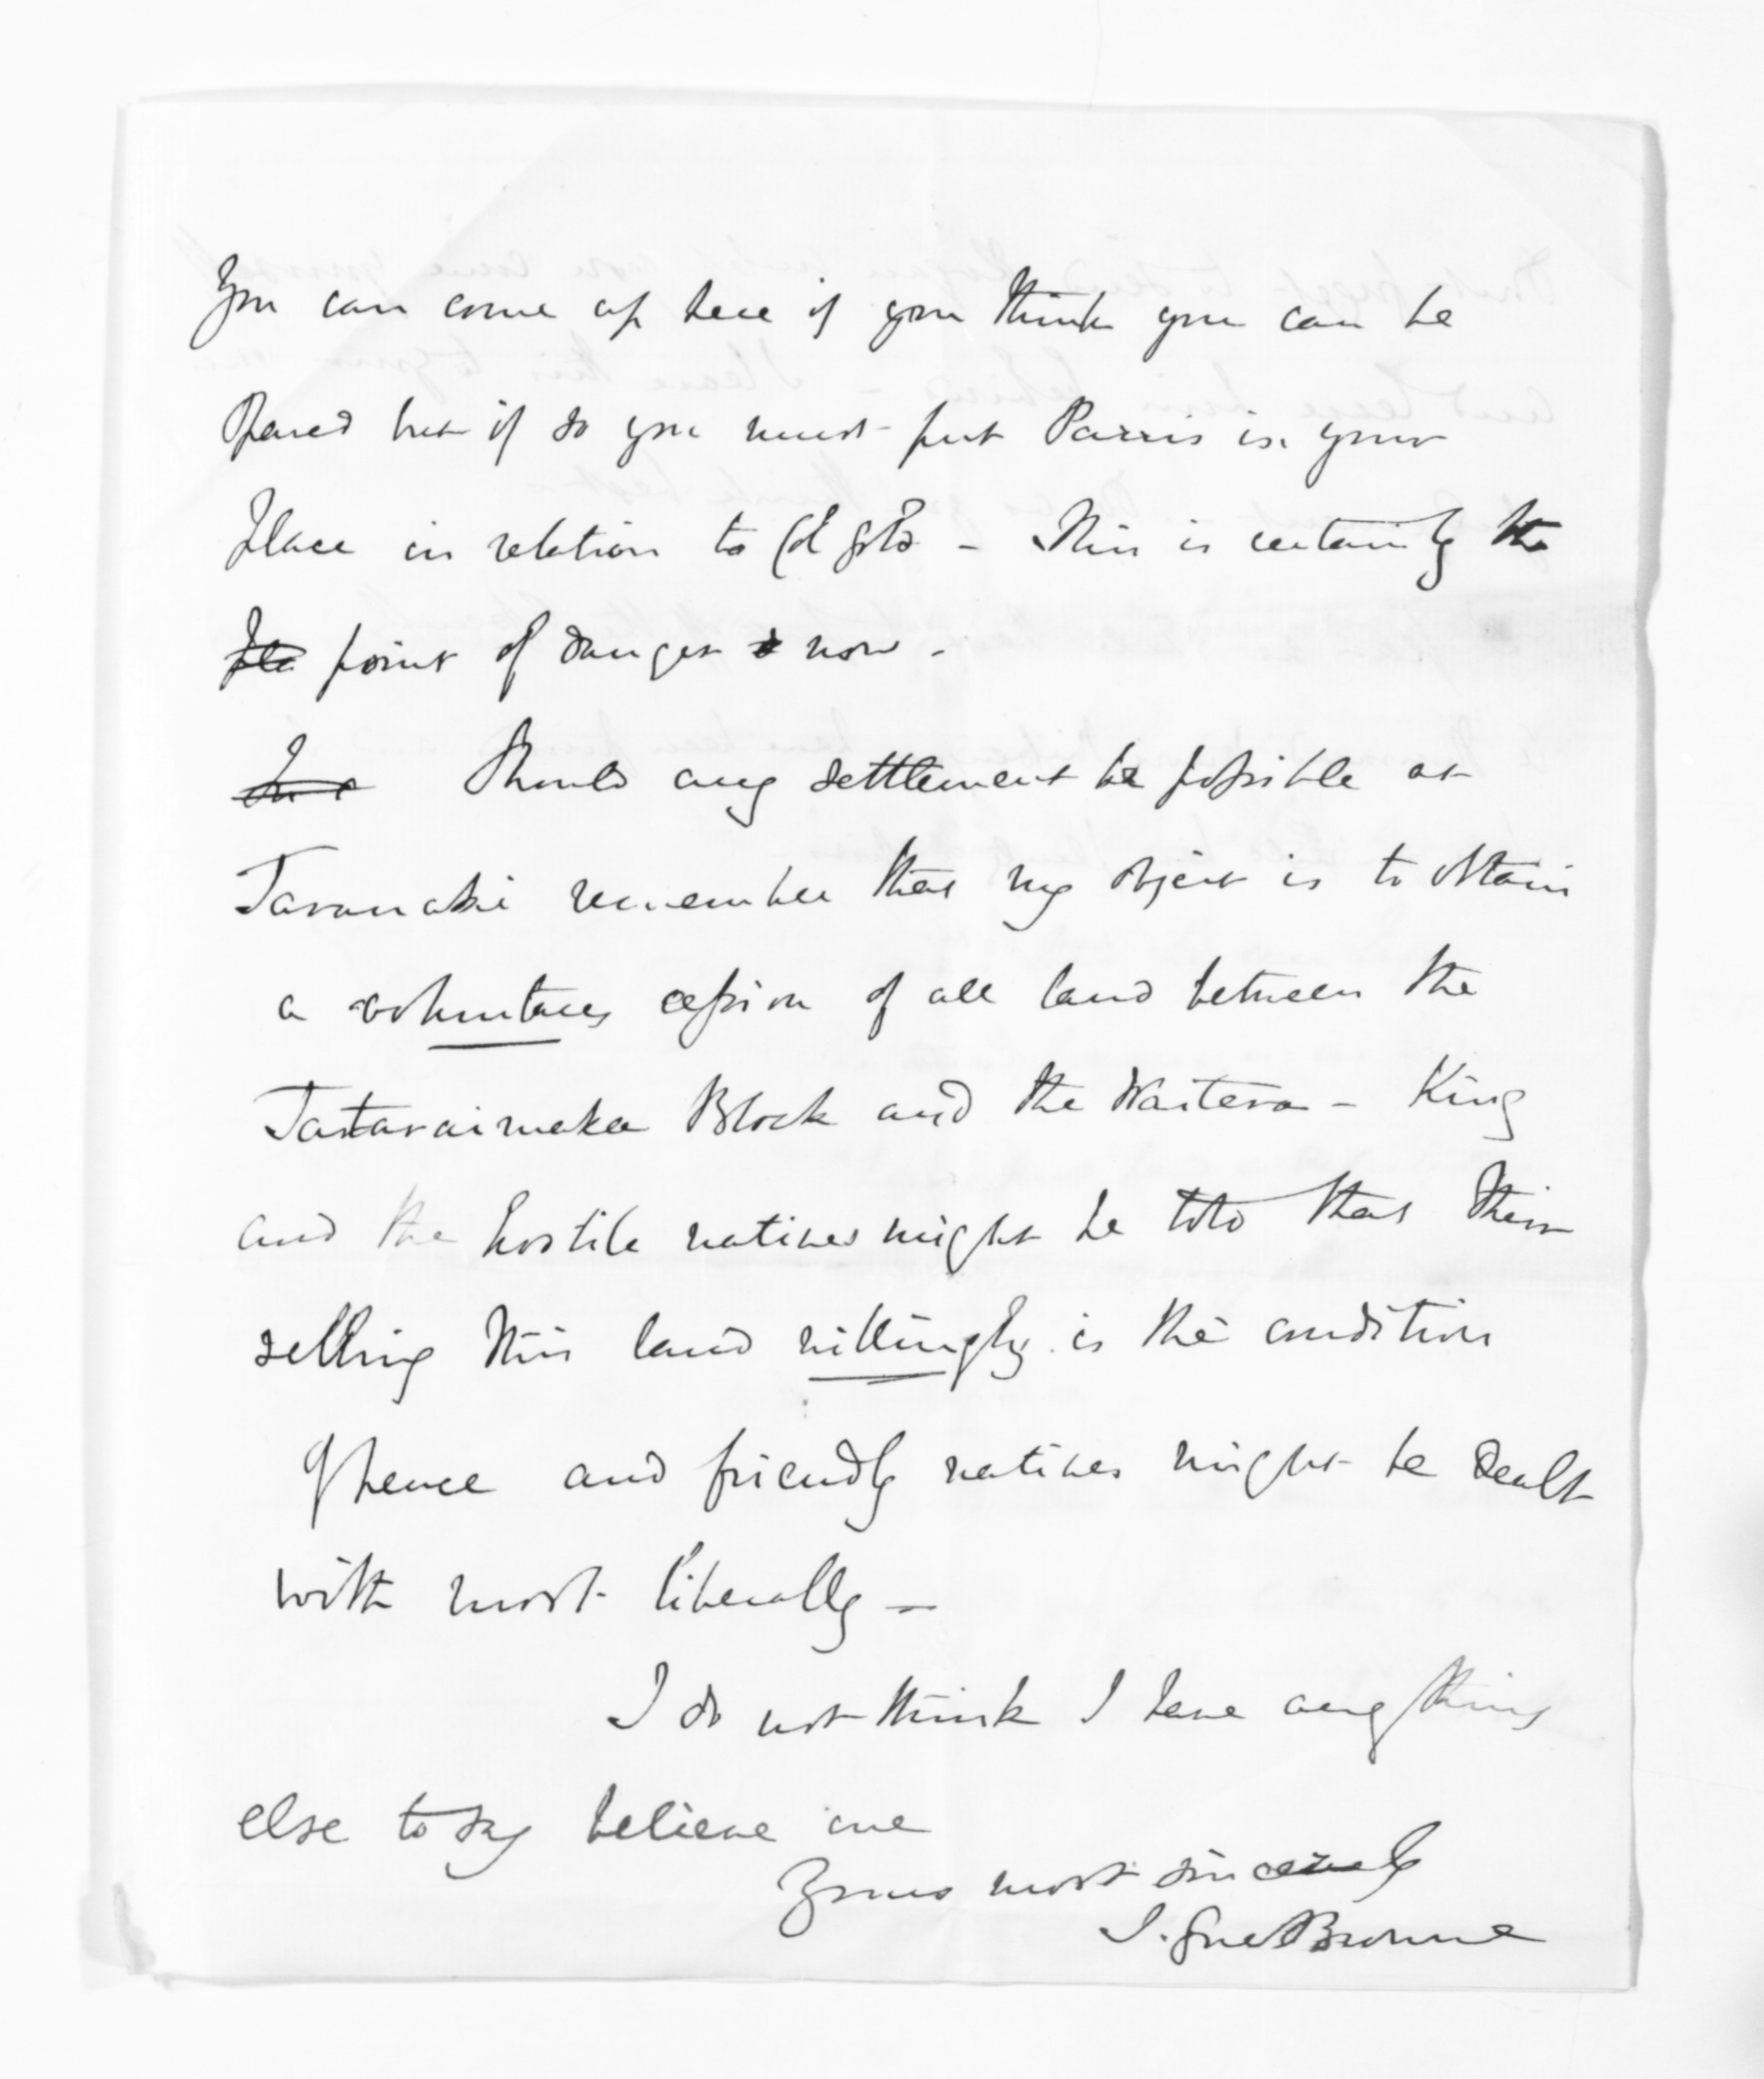 You can come up here if you think you can be
spared but if so you must put Parris in your
place in relation to Col Gold - This is certainly the
point of danger now -
Should any settlement be possible at
Taranaki remember that my object is to obtain
a voluntary cession of all land between the
Tataraimaka Block and the Waitera - King
and the hostile natives might be told that their
selling this land willingly is the condition
of peace and friendly natives might be dealt
with most liberally -
I do not think I have anything
else to say believe me
Yours most sincerely
T. Gore Browne